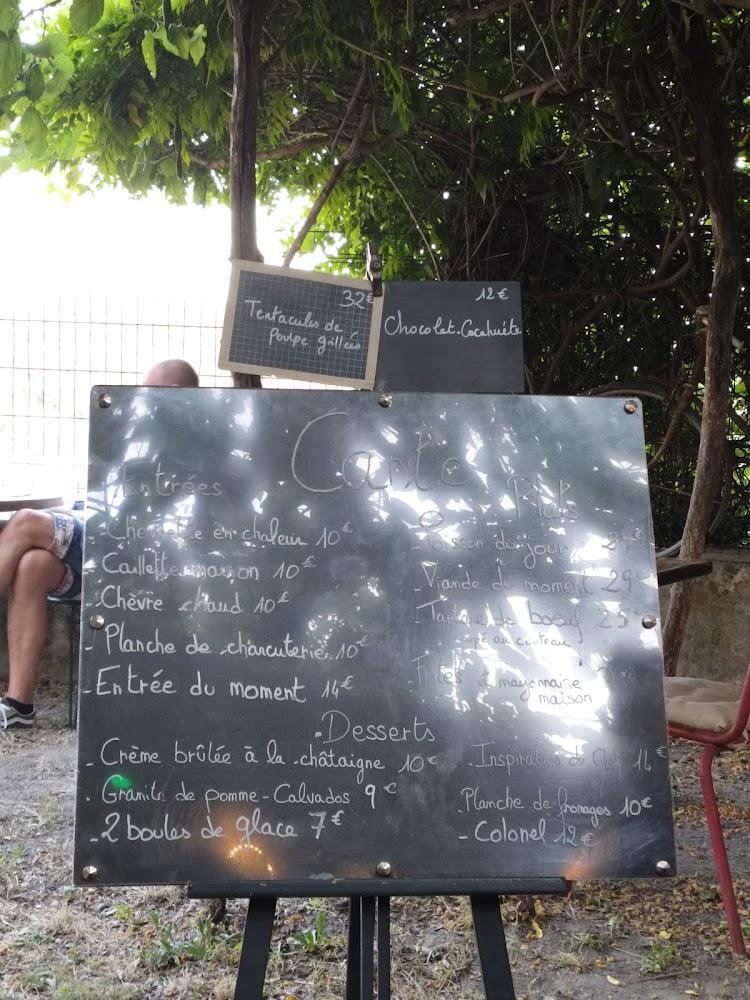 32€
Tentacules de
Poulpe grillés
12€
Chocolat-Cacahuète
Carte
Entrées
en chaleur 10€
Caillette maison 10€
- Chèvre chaud 10€
- Planche de charcuterie 10€
- Entrée du moment 14€
Plats
- Poisson du jour
- Viande du moment 29€
- Tartare de boeuf 25€
au couteau
- Frites et mayonnaise
maison
. Desserts
- Crème brûlée à la châtaigne 10€
. Granite de pomme-Calvados 9€
- 2 boules de glace 7€
- Inspiration du 14€
. Planche de fromages 10€
- Colonel 12€